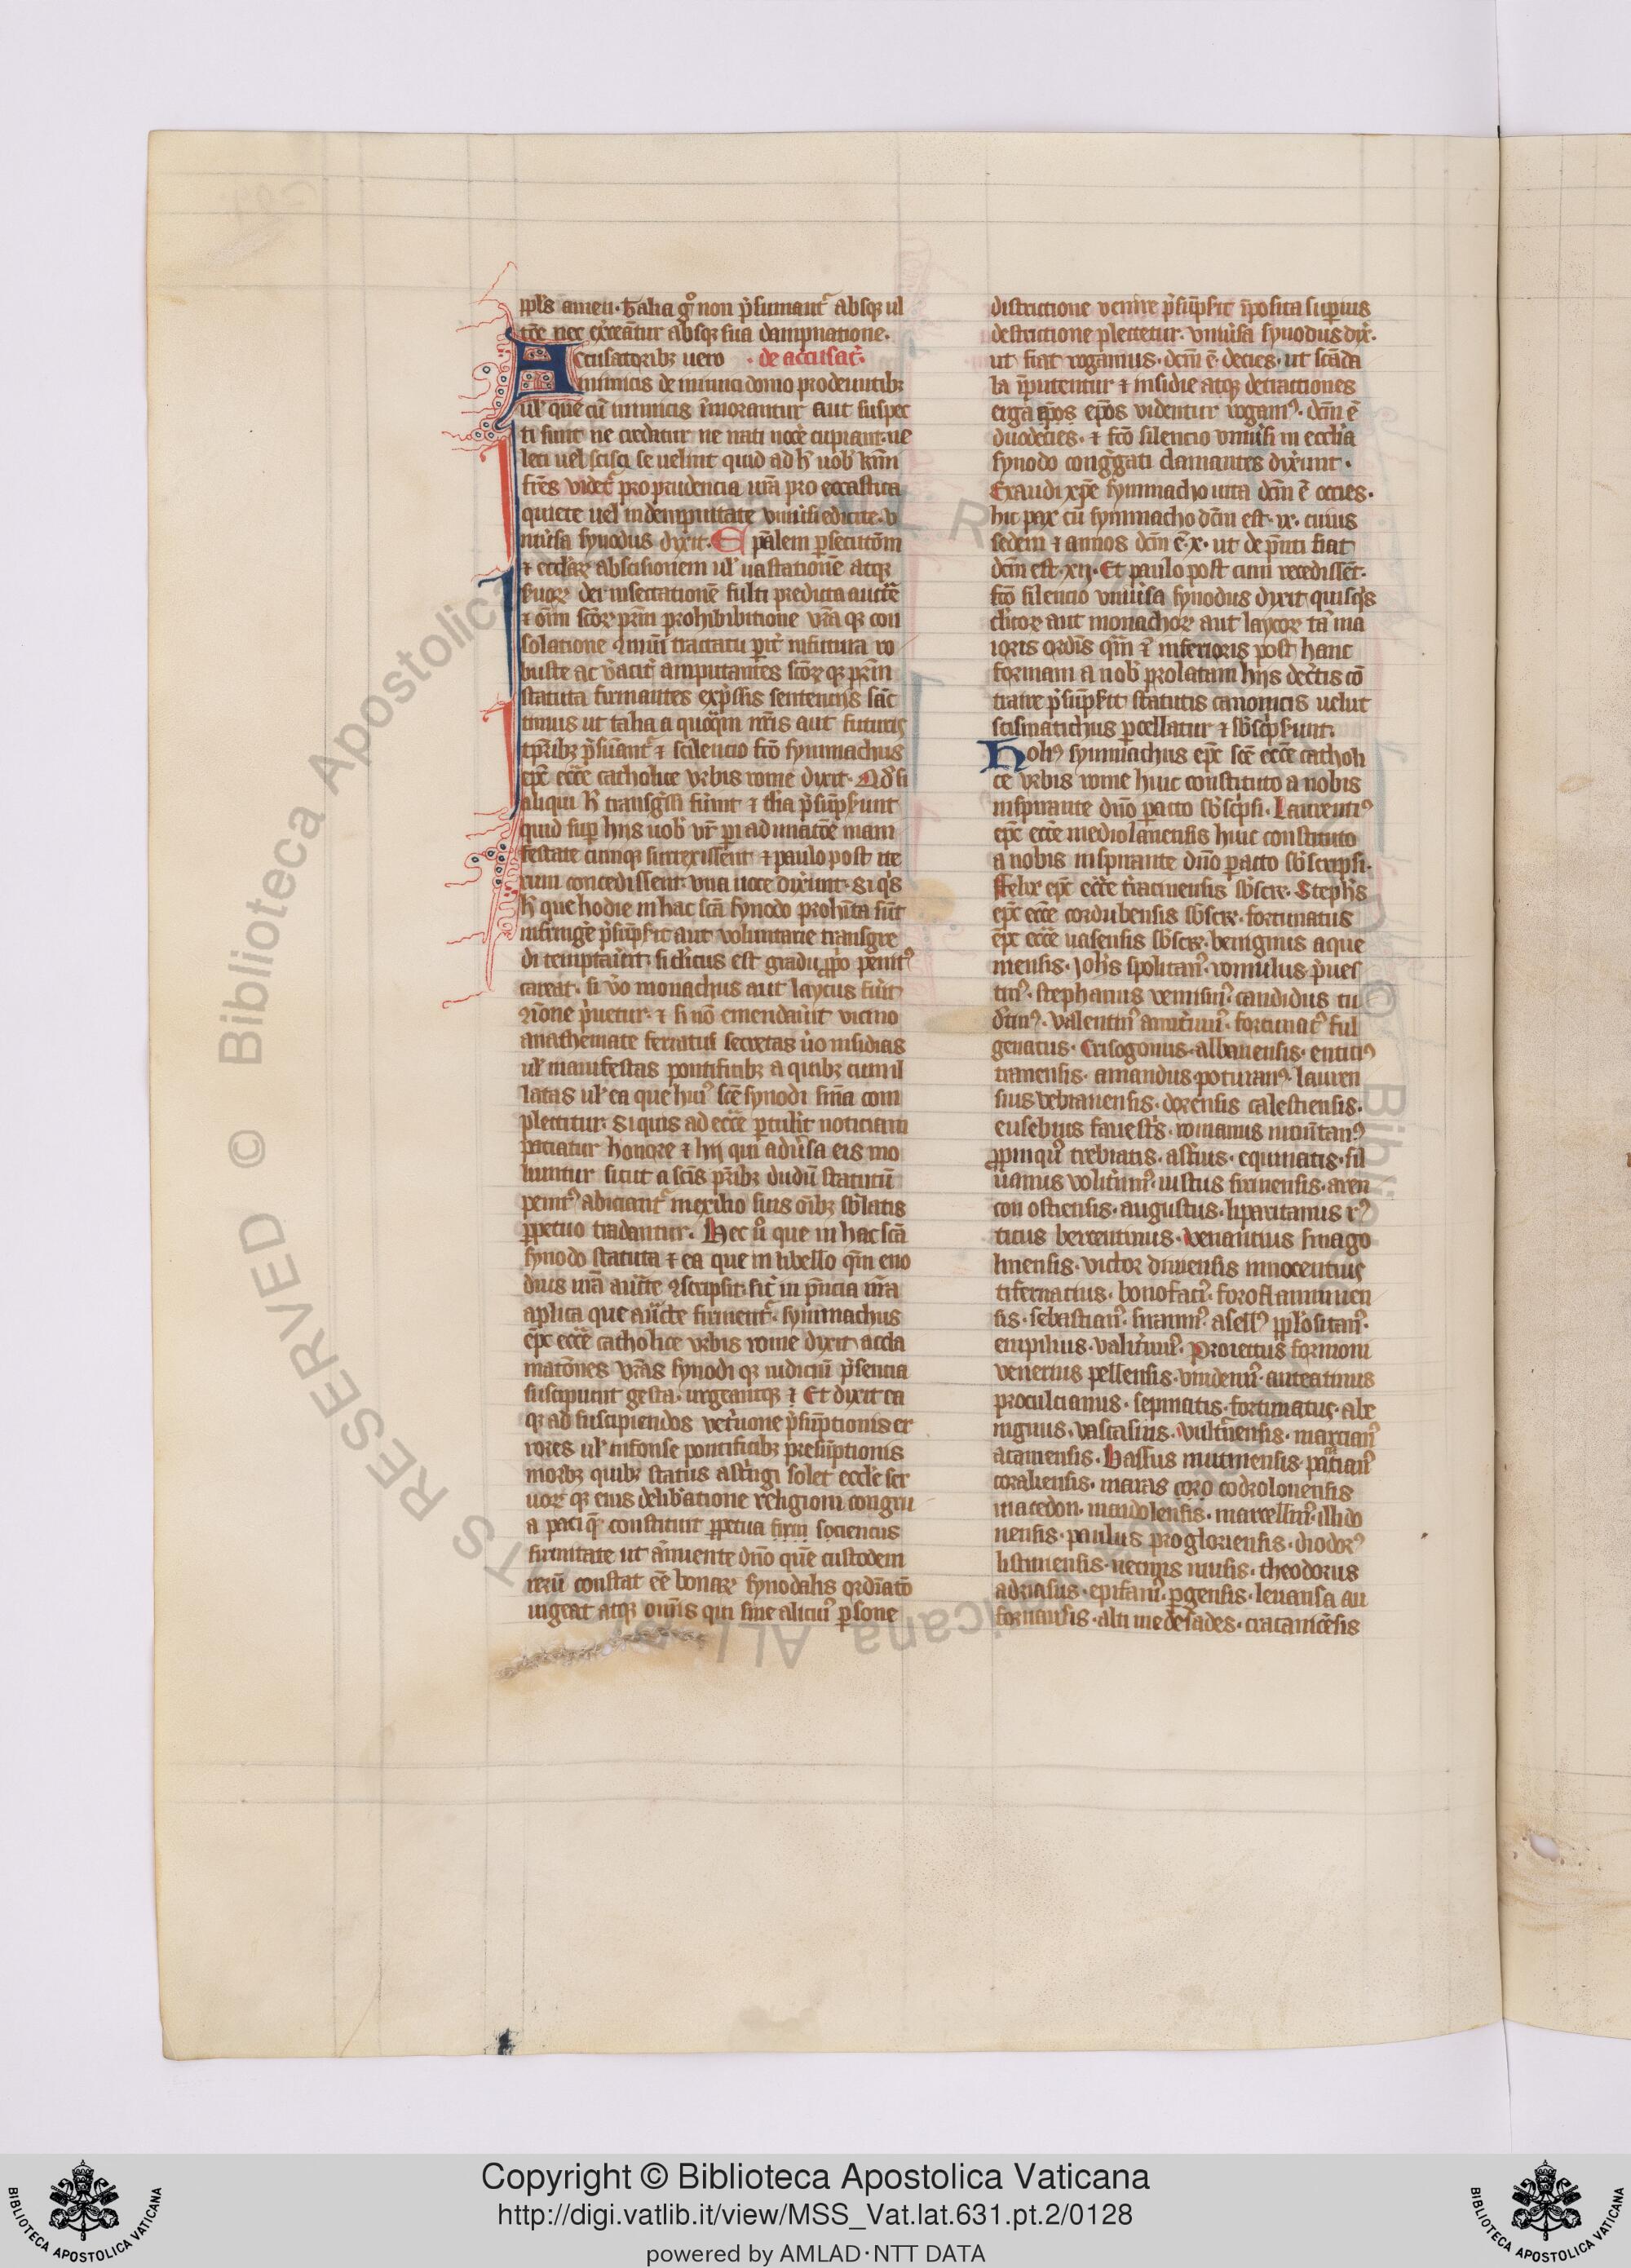 ppl's amen. Talia g° non p'sumant' absq; ul
tōe nec ex'ceātur absq; sua dampnatione.
Accusatorib; uero . de accusac'.
inimicis de inimici domo prodeuntib;
ul' que cū inimicis īmorantur aut suspec
ti sunt ne credatur ne nati nocē cupiant ue
fr̄es videt' pro prudencia ur̄a pro eccastica
quiete uel indempnitate vniu'si edicite. v
niu'sa synodus dyxit. Ep̄alem p'secutōm
⁊ eccl'ar; abscisionem ul' uastationē atq;
suor; dei insectationē fulti predicta auct̄te
⁊ oīm scōr; pr̄m prohibibitione vr̄a q; con
solatione ⁊mūi tractatu
buste ac v'acit' amputantes scōr; q; pr̄m
statuta firmantes exp'ssis sentencijs sāc
timus ut talia a quoq̄m nr̄is aut futuris
tp̄rib; p'sumant' ⁊ scilencio fc̄o symmachus
ep̄c ecc̄e catholice vrbis rome dyxit. Qd' si
aliqui h' transg'ssi fu'int ⁊ t'lia p'sūps'unt
quid sup hijs uob' ur̄
festate cunq; surrexissent ⁊ paulo post ite
rum concedissent vna uoce dix'unt. Si q's
h' que hodie in hac sc̄a synodo prohita sūt
infringe' p'sūps'it aut voluntarie transgre
di temptau'it. si cl'icus est gradu pp'o penit'
careat. si v'o monachus aut laycus fu'it
⁊ione p'uetur. ⁊ si nō emendau'it vicino
anathemate ferratus secretas u'o insidias
ul' manifestas pontificib; a quib; cumil
latas ul' ea que hui' sc̄e synodi sn̄ia com
plectitur. Si quis ad ecc̄e p'tulit noticiam
paciatur honore ⁊ hij qui adu'sa eis mo
liuntur sicut a sc̄is pr̄ib; dudū statutū
penit' adiciant' inexilio suis oīb; sb'latis
p'petuo tradantur. Hec u'o que in hac sc̄a
synodo statuta ⁊ ea que in libello q̄m eno
dius
ap̄lica que auc̄te firment'. symmachus
ep̄c ecc̄e catholice vrbis rome dyxit accla
matōnes vr̄as synodi q; iudiciū p'sencia
suscipiunt gesta. urgeantq; ⁊ Et dyxit ea
q; ad suscipiendos vet'uione p'sūptionis er
rores ul' infonse pontificib; presūptionis
morb; quib; status ast'ngi solet eccl'e ser
uor; q; eius delib'atione religioni congru
a paci q; constituit p'petua firm sociencus
firmitate ut āmuente dn̄o quē custodem
rerū constat ee' bonar; synodalis ordīatō
uigeat atq; omīs qui sine alicui' p'sone
districtione venire p'sūps'it īposita superius
destrictione plectetur. vniu'sa synodus dix'.
ut fiat rogamus. dcm̄ ē. decies. ut scāda
la īputentur ⁊ insidie atq; detractiones
erga ep̄os videntur rogam'. dcm̄ ē
duodecies. ⁊ fc̄o silencio vniu'si in eccl'ia
synodo congg'ati clamantes dyx'unt.
Exaudi xp̄e symmacho uita dcm̄ ē occies.
hic pax cū symmacho dcm̄ est. ix. cuius
sedem ⁊ annos dcm̄ ē. x. ut de p'nti fiat
dcm̄ est. xij. Et paulo post cum recedissēt.
fc̄o silencio vniu'sa synodus dyxit quisq's
cl'icor; aut monachor; aut laycor; ta' ma
ioris ordīs q̄m ⁊ inferioris post hanc
formam a nob' prolatam hijs dec'tis cō
traire p'sūps'it statutis canonicis velut
scismatichus p'cellatur ⁊ sb'sc'ps'unt.
Holi' symmachus ep̄c sc̄e ecc̄e catholi
ce vrbis rome huic constituto a nobis
inspirante dn̄o p'acto sb'sc'psi. Laurenti'
ep̄c ecc̄e mediolanensis huic constituto
a nobis inspirante dn̄o p'acto sb'scripsi.
Ffelix ep̄c ecc̄e t'racinensis sb'scr. Steph's
ep̄c ecc̄e cordubensis sb'scr. fortunatus
ep̄c ecc̄e uasensis sb'scr. benignus aque
mensis. Joh's spolitan'. romulus p'nes
tin'. stephanus venusin'. candidus tu
d'tin'. valentin' amit'nin'. fortunat' ful
genatus. Crisogonus. albanensis. enticiꝰ
tranensis. amandus poturan'. lauren
sius vebranensis. dorensis calestiensis.
eusebius fauest's. romanus mōntan'
ppinqu' trebiatis. ast'ius. equinatis. sil
uanus volit'nin'. iustus sirinensis. aren
con ostiensis. augustus. liparitanus r'
ticus bercentinus. venantius sinago
linensis. victor diuiensis innocentius
tifernacius. bonofaci'. foroflaminien
sis. sebastian'. suranin'. asell' pplositan'.
empilius. valit'nin'. Proiectus formoni
venerius pellensis. vindenn'. anteatinus
proculcianus. sepinatis. fortunatus. abe
nignus. vascasius. vulst'nensis. marcian'
atamensis. Bassus mutinensis. pat'cian'
coraliensis. maras coro codrolonensis
macedon. mandolensis. marcellin'. illido
nensis. paulus progloriensis. diodor'
listinensis. necinis nusis. theodorus
adriasus. epifani'. p'gensis. leuansa au
fornansis. alti medesades. cracanicēsis
Copyright © Biblioteca Apostolica Vaticana
http://digi.vatlib.it/view/MSS_Vat.lat.631.pt.2/0128
powered by AMLAD·NTT DATA